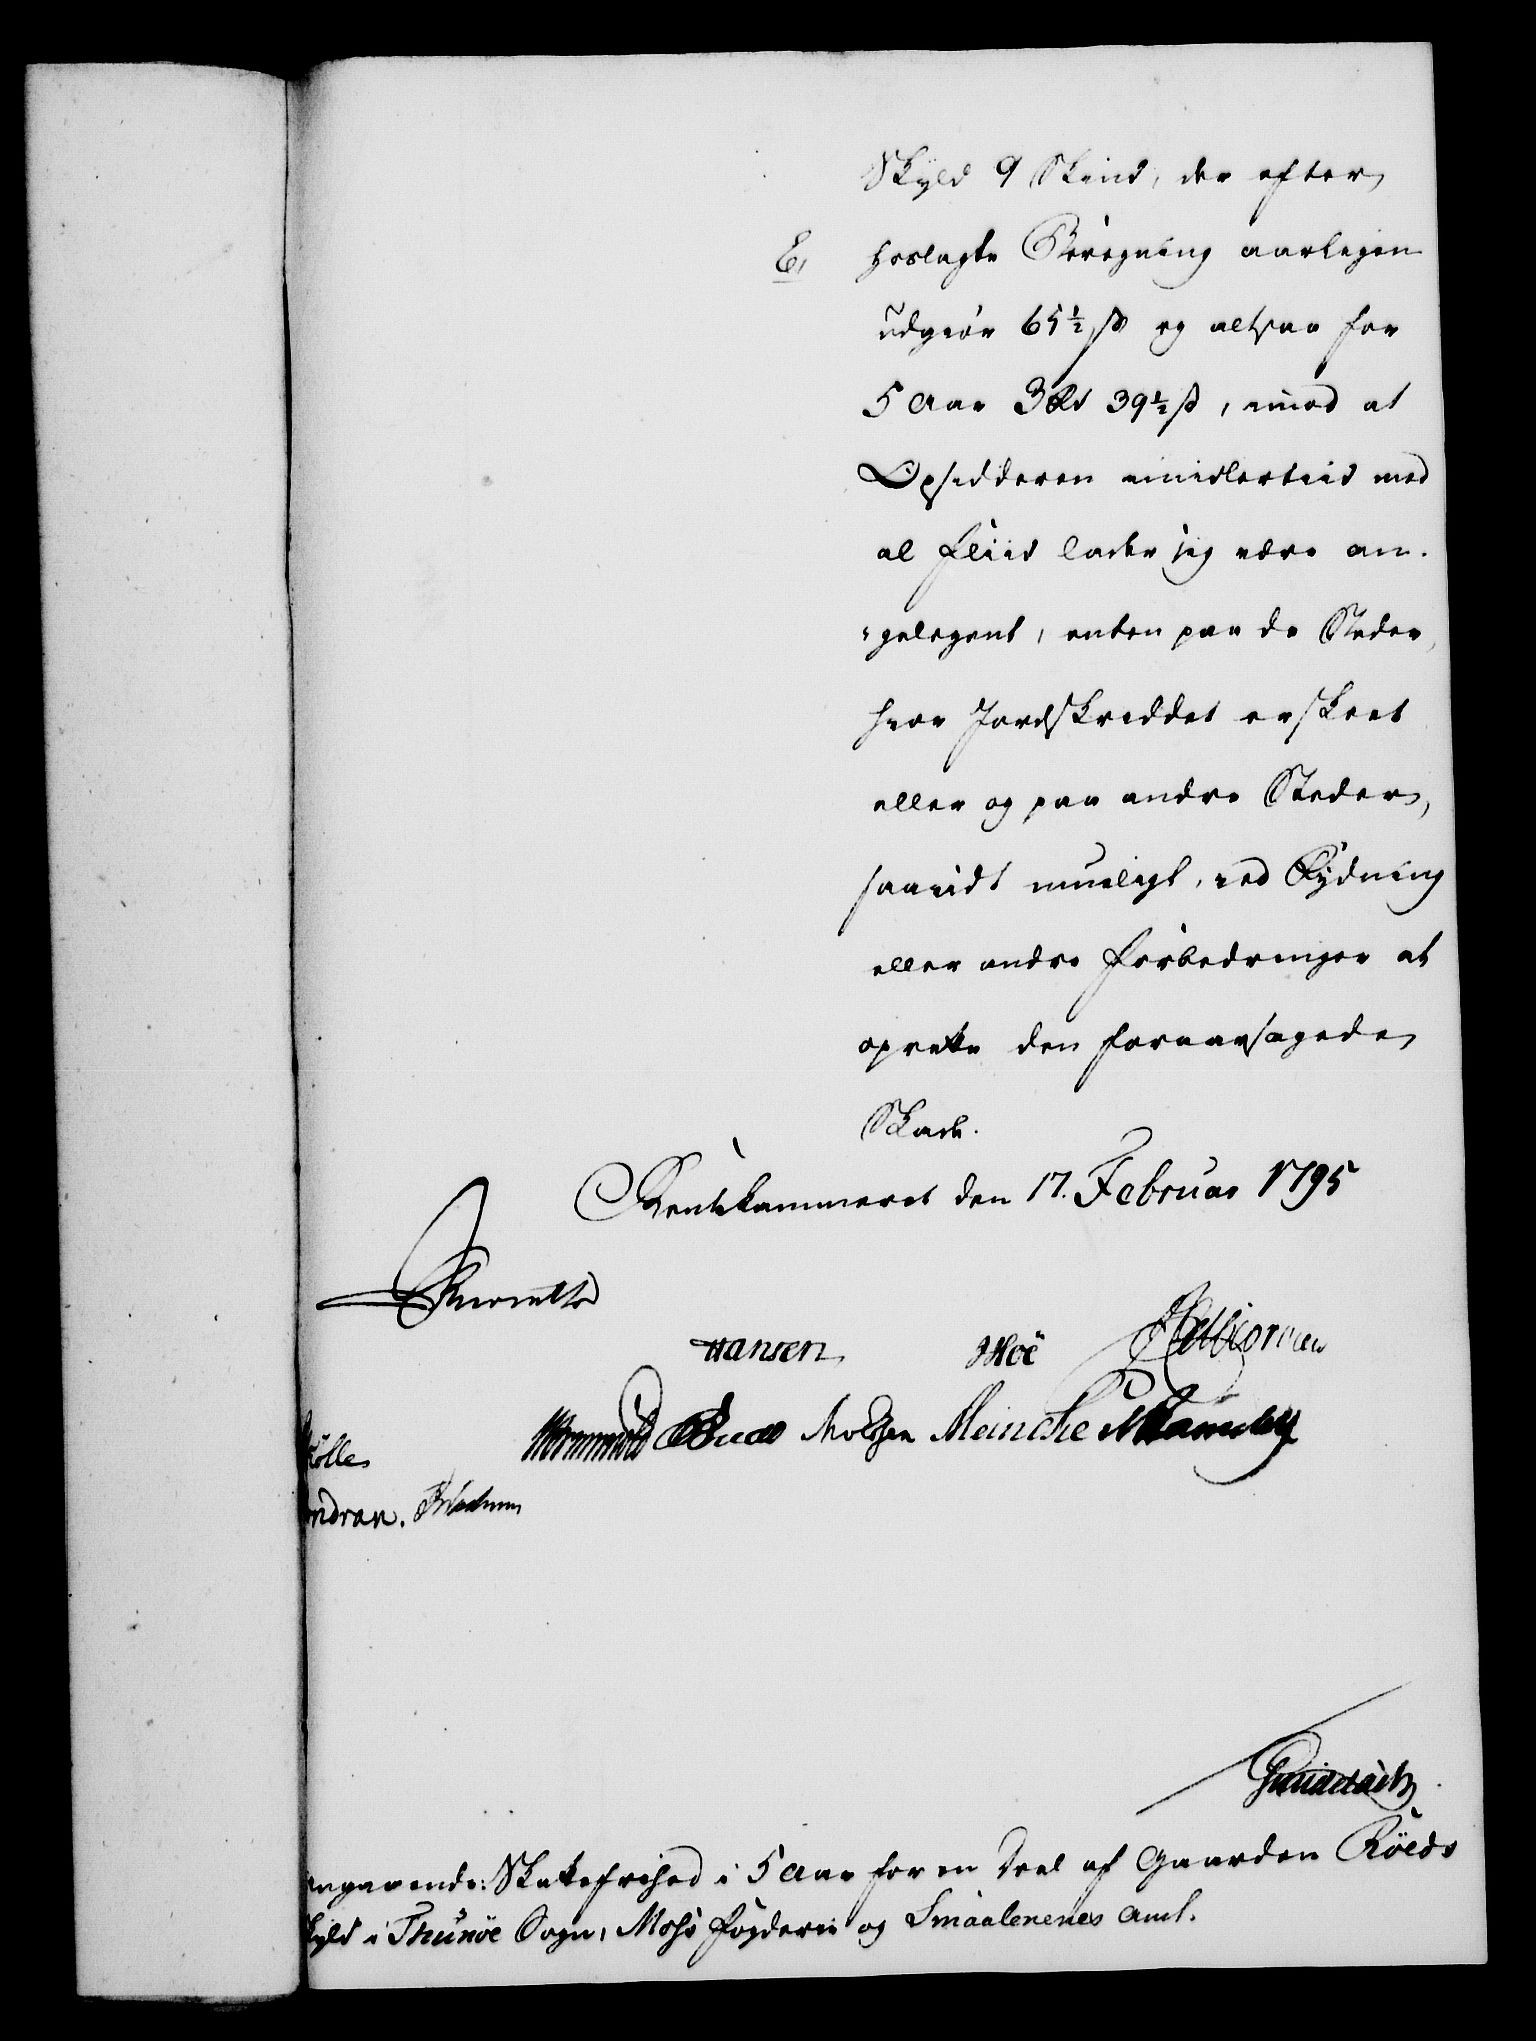 Skyld 9 Skind, der efter
E, hoslagte Beregning aarligen
udgiør 65½ ß og altsaa for
5 Aar 3 Rd 39½ ß, imod at
Opsidderen imidlertiid med
al Fliid lader sig være an-
-gelegent, enten paa de Steder,
hvor Jordskreddet er skeet
eller og paa andre Steder,
saavidt mueligt, ved Rydning
eller andre Forbedringer at
oprette den foraarsagede
Skade.
Rentekammeret den 17. Februar 1795
Hansen Moë
Wormskiold Meinche
ölle
Gundelach
angaaende: Skattefrihed i 5 Aar for en Deel af Gaarden Röeds
Skyld i Thunöe Sogn, Moss Fogderie og Smaalenenes Amt.